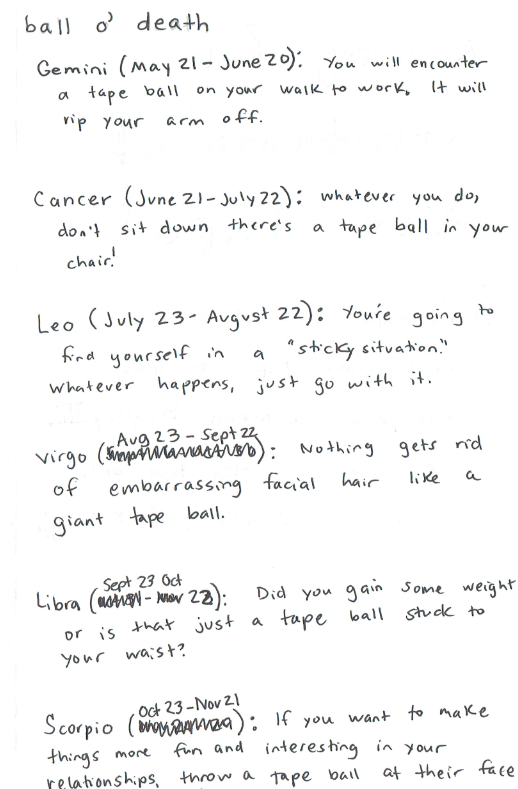 ball o' death
Gemini (May 21 - June 20): You will encounter
a tape ball on your walk to work. It will
rip your arm off.
Cancer (June 21 - July 22): whatever you do,
don't sit down there's a tape ball in your
chair!
Leo (July 23 - August 22): You're going to
find yourself in a "sticky situation."
Whatever happens, just go with it.
Aug 23 - Sept 22
Virgo (): Nothing gets rid
of embarrassing facial hair like a
giant tape ball.
Sept 23 Oct
Libra ( - 22): Did you gain some weight
or is that just a tape ball stuck to
your waist?
Oct 23 - Nov 21
Scorpio (): If you want to make
things more fun and interesting in your
relationships, throw a tape ball at their face